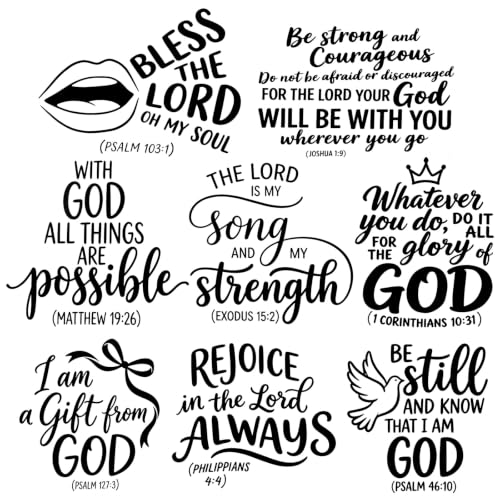 BLESS
THE
LORD
OH MY SOUL
(PSALM 103:1)
Be strong and
Courageous
Do not be afraid or discouraged
FOR THE LORD YOUR God
WILL BE WITH YOU
wherever you go
(JOSHUA 1:9)
WITH
GOD
ALL THINGS
ARE
possible
(MATTHEW 19:26)
THE LORD
IS MY
song
AND MY
strength
(EXODUS 15:2)
Whatever
you do, DO IT
ALL
FOR
THE glory of
GOD
(1 CORINTHIANS 10:31)
I am
a Gift from
GOD
(PSALM 127:3)
REJOICE
in the Lord
ALWAYS
(PHILIPPIANS
4:4)
BE
still
AND KNOW
THAT I AM
GOD
(PSALM 46:10)